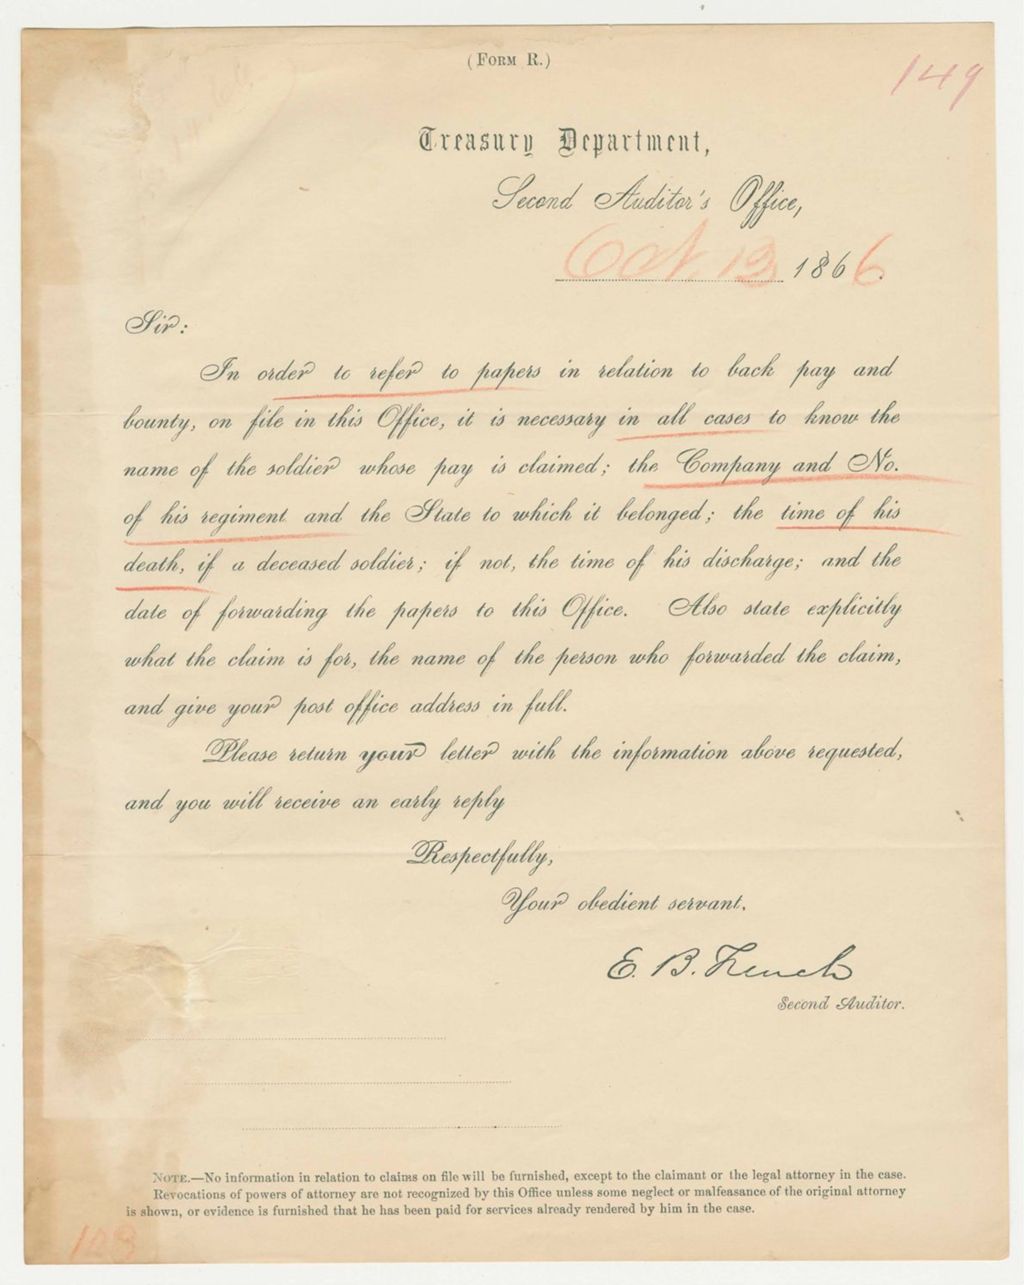 (FORM R.)
149
Treasury Department,
Second Auditor's Office,
Oct 13 1866.
Sir:
In order to refer to papers in relation to back pay and
bounty, on file in this Office, it is necessary in all cases to know the
name of the soldier whose pay is claimed; the Company and No.
of his regiment and the State to which it belonged; the time of his
death, if a deceased soldier; if not, the time of his discharge; and the
date of forwarding the papers to this Office. Also state explicitly
what the claim is for, the name of the person who forwarded the claim,
and give your post office address in full.
Please return your letter with the information above requested,
and you will receive an early reply
Respectfully,
Your obedient servant,
E. B. French
Second Auditor.
NOTE.—No information in relation to claims on file will be furnished, except to the claimant or the legal attorney in the case.
Revocations of powers of attorney are not recognized by this Office unless some neglect or malfeasance of the original attorney
is shown, or evidence is furnished that he has been paid for services already rendered by him in the case.